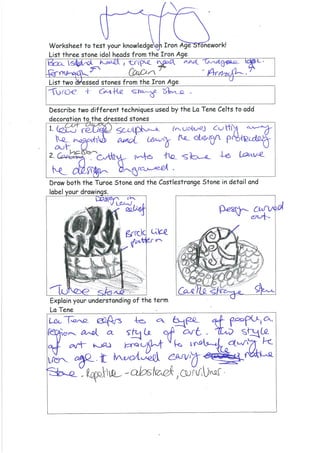 Worksheet to test your knowledge on Iron Age Stonework!
List three stone idol heads from the Iron Age
Boa Island head, triple head and Tandragee idol.
Fermanagh Cavan Armagh.
List two dressed stones from the Iron Age
Turoe + Castle strange Stone.
Describe two different techniques used by the La Tene Celts to add
decoration to the dressed stones
cut away
1. low relief sculpture involves cutting away
the negative and leaving the design protruding
out
2. cutting into the stone to leave
the design engraved.
Draw both the Turoe Stone and the Castlestrange Stone in detail and
label your drawings.
Design in
Low
relief
Brick like
pattern
Turoe stone
Design carved
out.
Castle strange Stone
Explain your understanding of the term
La Tene
La Tene refers to a type of people, a
region and a style of art. This style
of art was brought to Ireland during the
iron age. It involved carving native
Stone. Repetitive - abstract, curvilinear.